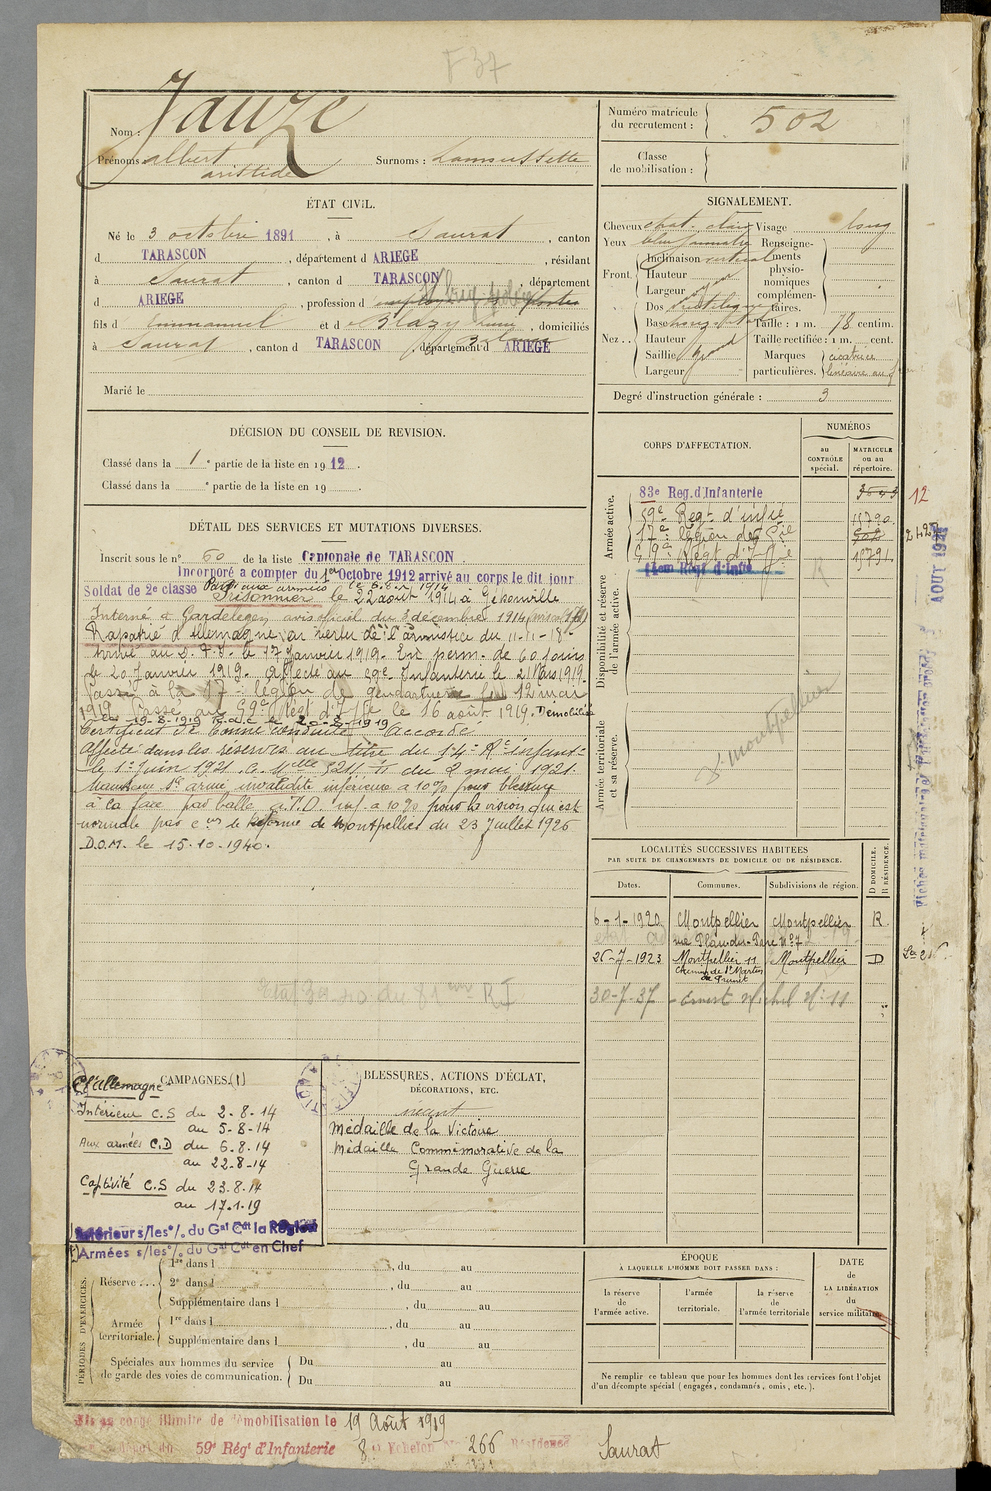 F 37
Nom : Jauze
Prénoms : albert
aristide
Surnoms : Lamoussette
Numéro matricule
du recrutement :
502
Classe
de mobilisation :
ÉTAT CIVIL.
Né le 3 octobre 1891, à Saurat, canton
d TARASCON, département d ARIEGE, résidant
à Saurat, canton d TARASCON, département
d ARIEGE, profession d
fils d Emmanuel et d Blazy, domiciliés
à Saurat, canton d TARASCON, département d ARIEGE
Marié le
SIGNALEMENT.
Cheveux chat. clair Visage long
Yeux bleu Renseigne-
ments
physio-
nomiques
complémen-
taires.
Front.
Inclinaison vertical
Hauteur
Largeur
Nez ..
Dos rectiligne
Base horizontale
Hauteur
Saillie grand
Largeur
Taille : 1 m. 78 centim.
Taille rectifiée : 1 m. cent.
Marques
particulières.
cicatrice
linéaire au
Degré d'instruction générale : 3
DÉCISION DU CONSEIL DE REVISION.
Classé dans la 1e partie de la liste en 1912.
Classé dans la e partie de la liste en 19
CORPS D'AFFECTATION.
NUMÉROS
au
CONTRÔLE
spécial.
MATRICULE
ou au
répertoire.
Armée active.
83e Reg.d'Infanterie
59e Regt d'infie
17e légion de Gie
59e Regt d'Infie
14em Régt d'Infie
12
Disponibilité et réserve
de l'armée active.
Armée territoriale
et sa réserve.
Montpellier
AOUT 1925
DÉTAIL DES SERVICES ET MUTATIONS DIVERSES.
Inscrit sous le n° 60 de la liste Cantonale de TARASCON
Incorporé a compter du 1er Octobre 1912 arrivé au corps le dit jour
Soldat de 2e classe Parti aux armées le 6.8.1914
Prisonnier le 22 août 1914 à Gehonville
Interné à Gardelegen avis officiel du 3 décembre 1914
Rapatrié d'Allemagne en vertu de l'armistice du 11-11-18
arrivé au D. T. I. le 17 janvier 1919. En perm. de 60 jours
le 20 janvier 1919. affecté au 59e Infanterie le 21 Mars 1919.
Passé à la 17e légion de gendarmerie le 12 mai
1919. Passé au 59e Régt d'Ifie le 16 août 1919. Démobilisé
le 19-8-1919
Certificat de bonne conduite "Accordé"
Affecté dans les réserves au titre du 14e Rt infant.
le 1er Juin 1921. C. Melle 5211 du 2 mai 1921.
Maintenu Sce armé invalidité inférieure à 10% pour blessure
à la face par balle. P.T.D. inf. à 10% pour la vision qui est
normale par con de réforme de Montpellier du 23 Juillet 1926
D.O.M. le 15-10-1940.
LOCALITÉS SUCCESSIVES HABITÉES
PAR SUITE DE CHANGEMENTS DE DOMICILE OU DE RÉSIDENCE.
Dates.
Communes.
Subdivisions de région.
D DOMICILE.
R RÉSIDENCE.
6-1-1920 Montpellier Montpellier R
26-7-1923 Montpellier 11 Montpellier D
Chemin de St Martin
de Prunet
30-7-37 Ernest Michel N° 11
CAMPAGNES.(1)
C/ Allemagne
Intérieur C.S du 2-8-14
au 5-8-14
Aux armées C.D du 6-8-14
au 22-8-14
Captivité C.S du 23.8.14
au 17.1.19
Intérieur s/les o/. du Gal Cdt la Région
Armées s/les o/. du Gal Cdt en Chef
BLESSURES, ACTIONS D'ÉCLAT,
DÉCORATIONS, ETC.
néant
Médaille de la Victoire
Médaille Commémorative de la
Grande Guerre
PÉRIODES D'EXERCICES.
Réserve ...
1re dans l , du au
2e dans l , du au
Supplémentaire dans l , du au
Armée
territoriale.
1re dans l , du au
Supplémentaire dans l , du au
Spéciales aux hommes du service
de garde des voies de communication.
Du au
Du au
ÉPOQUE
À LAQUELLE L'HOMME DOIT PASSER DANS :
la réserve
de
l'armée active.
l'armée
territoriale.
la réserve
de
l'armée territoriale
DATE
de
LA LIBÉRATION
du
service militaire.
Ne remplir ce tableau que pour les hommes dont les services font l'objet
d'un décompte spécial (engagés, condamnés, omis, etc.).
Mis en congé illimité de démobilisation le 19 Août 1919
59e Régt d'Infanterie 8e Echelon 266 Résidence Saurat